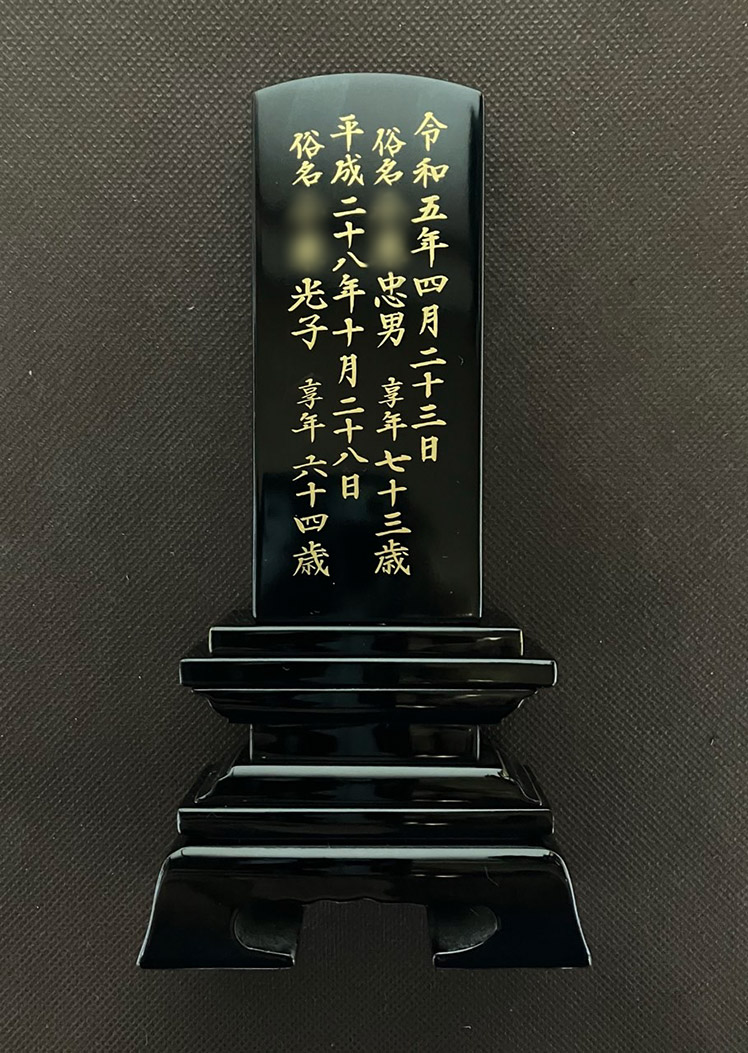 令和五年四月二十三日
俗名 忠男 享年七十三歳
平成二十八年十月二十八日
俗名 光子 享年六十四歳